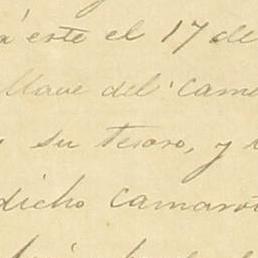 á este el 17 de
llave del came
su tesoro, y
dicho camarot